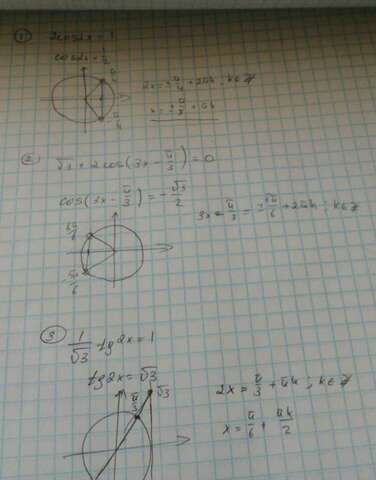 1) 2cos2x = 1
cos2x = 1/2
2x = ± π/4 + 2πk ; k∈Z
x = ± π/8 + πk
2) √3 + 2cos(3x − π/3) = 0
cos(3x − π/3) = −√3/2
5π/6
3x − π/3 = ± 5π/6 + 2πk ; k∈Z
3) 1/√3 tg2x = 1
tg2x = √3
π/3 √3
2x = π/3 + πk ; k∈Z
x = π/6 + πk/2